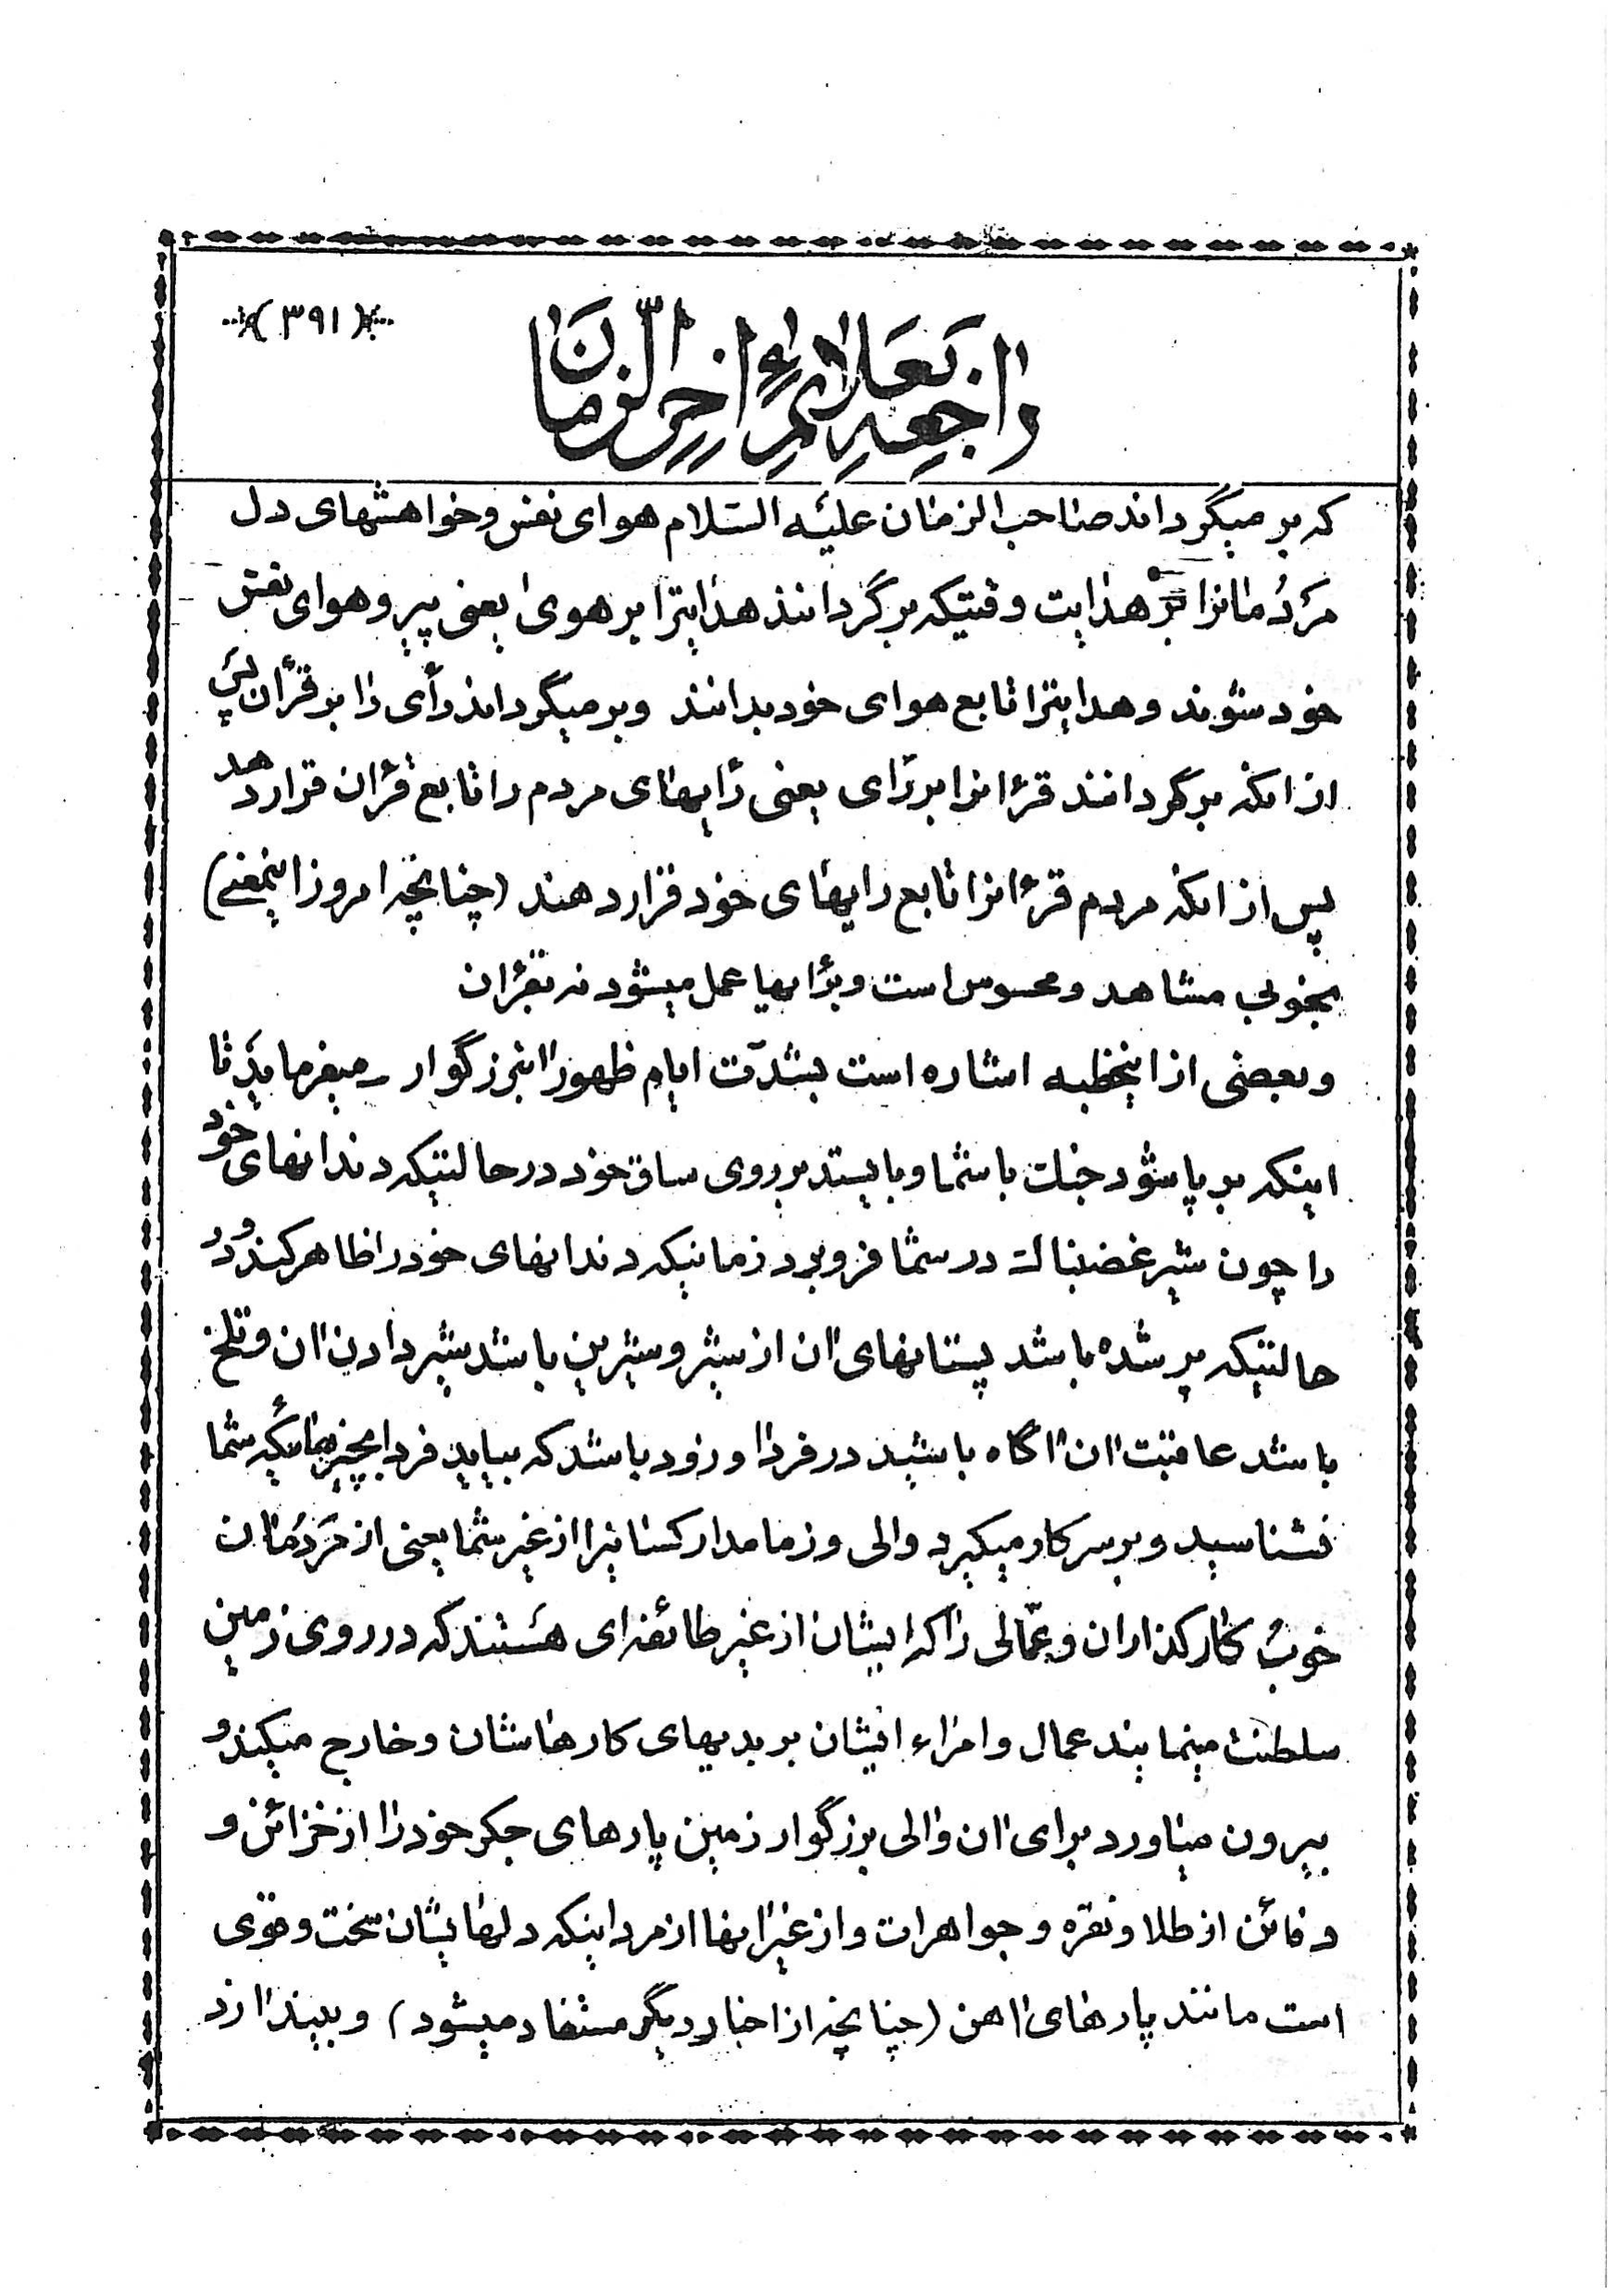 (۳۹۱)
راجعه بعلائم اخر الزمان
که بر میگرداند صاحب الزمان علیه السلام هوای نفس و خواهشهای دل
مردمانرا بر هدایت وقتیکه برگردانند هدایترا بر هوی یعنی پیرو هوای نفس
خود شوند و هدایترا تابع هوای خود بدانند و برمیگرداند رأی را بر قرآن پس
از انکه برگردانند قرءانرا بر رای یعنی رایهای مردم را تابع قرءان قرار دهد
پس از انکه مردم قرءانرا تابع رایهای خود قرار دهند (چنانچه امروز اینمعنی)
بخوبی مشاهد و محسوس است و برایها عمل میشود نه بقرءان
و بعضی از اینخطبه اشاره است بشدّت ایام ظهور انبزرگوار - میفرماید تا
اینکه بر پا شود جنک با شما و بایستد بر روی ساق خود در حالتیکه دندانهای خود
را چون شیر غضبناک در شما فرو برد زمانیکه دندانهای خود را ظاهر کند و در
حالتیکه پر شده باشد پستانهای ان از شیر و شیرین باشد شیر دادن ان و تلخ
باشد عاقبت ان اگاه باشید در فردا و زود باشد که بیاید فردا بچیزهائیکه شما
نشناسید و بر سر کار میگیرد والی و زمامدار کسانیرا از غیر شما یعنی از مردمان
خوب کارگذاران و عمّالی را که ایشان از غیر طائفه‌ای هستند که در روی زمین
سلطنت مینمایند عمال و امراء ایشان بر بدیهای کارهاشان و خارج میکند و
بیرون میاورد برای ان والی بزرگوار زمین پارهای جکر خود را از خزائن و
دفائن از طلا و نقره و جواهرات و از غیر اینها از مردانیکه دلهایشان سخت و قوی
است مانند پارهای اهن (چنانچه از اخبار دیگر مستفاد میشود) و بیندازد